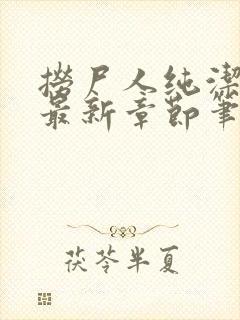 捞尸人纯洁
最新章节笔
茯苓半夏